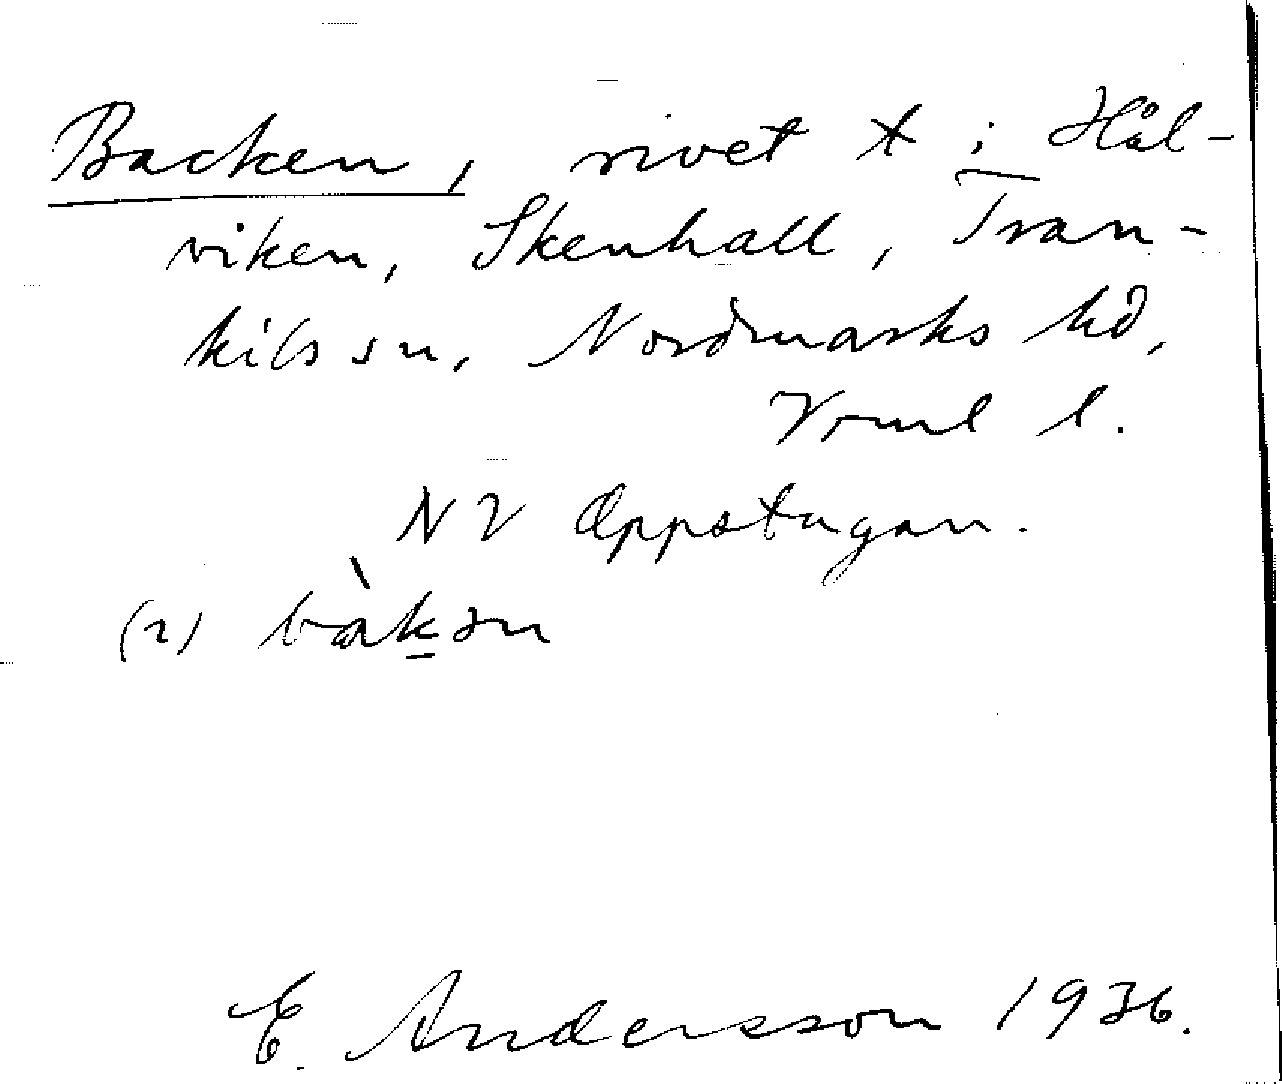 Backen, rivet t i Hål-
viken, Skenhall, Tran-
kils sn, Nordmarks hd,
Vrml l.
NV Oppstugan.
(2) bàkən
E. Andersson 1936.